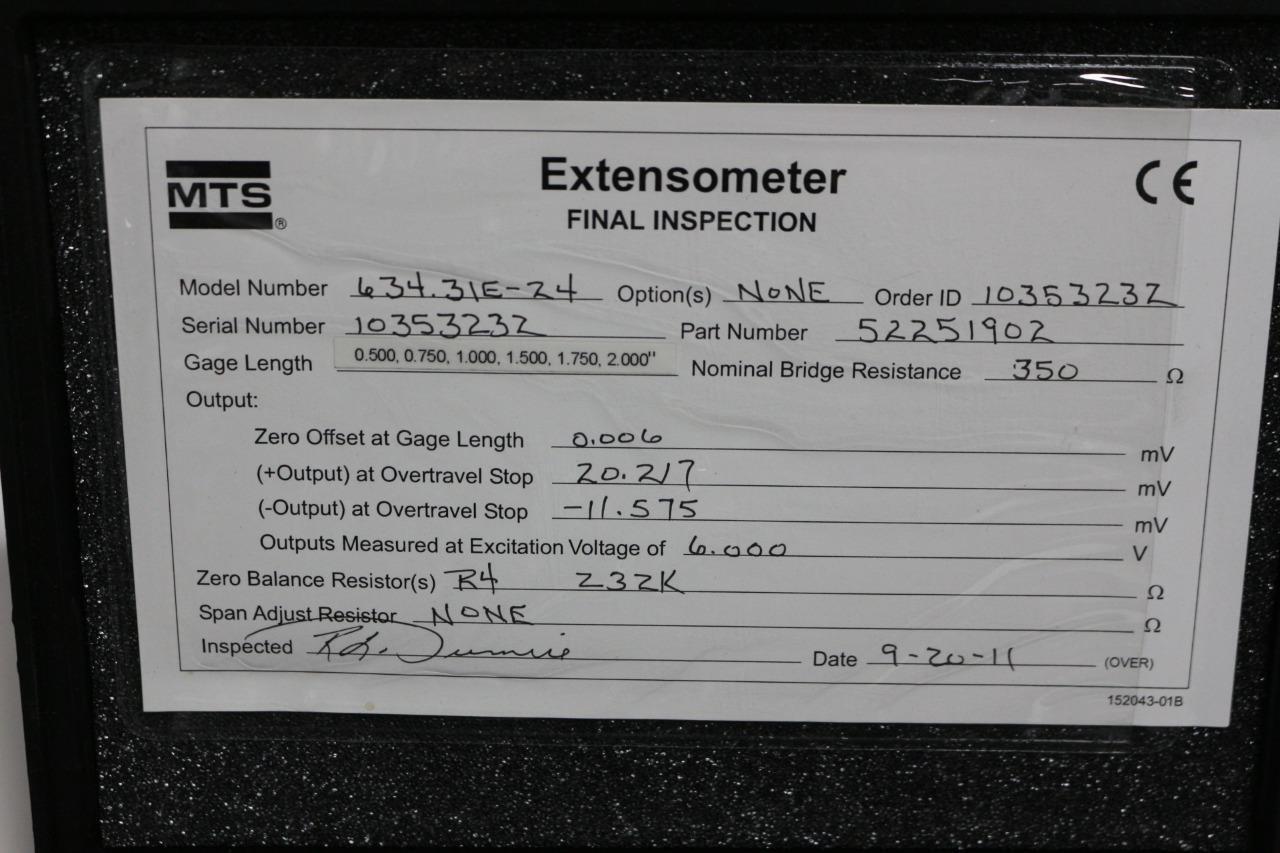 MTS®
Extensometer
CE
FINAL INSPECTION
Model Number 634.31E-24 Option(s) NONE Order ID 10353232
Serial Number 10353232 Part Number 52251902
Gage Length 0.500, 0.750, 1.000, 1.500, 1.750, 2.000" Nominal Bridge Resistance 350 Ω
Output:
Zero Offset at Gage Length 0.006 mV
(+Output) at Overtravel Stop 20.217 mV
(-Output) at Overtravel Stop -11.575 mV
Outputs Measured at Excitation Voltage of 6.000 V
Zero Balance Resistor(s) R4 232K Ω
Span Adjust Resistor NONE Ω
Inspected Date 9-20-11 (OVER)
152043-01B